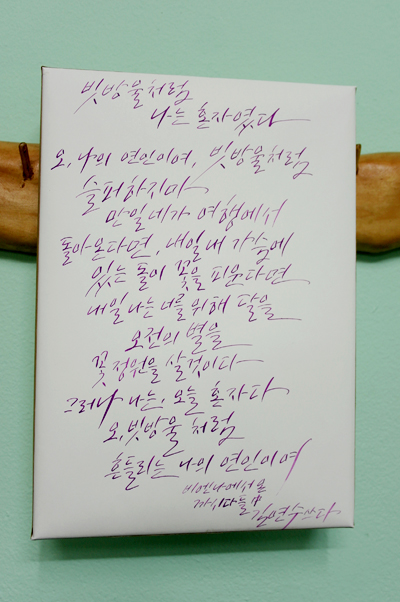 빗방울처럼
나는 혼자였다
오, 나의 연인이여, 빗방울처럼
슬퍼하지마
만일 네가 여행에서
돌아온다면, 내일 내 가슴에
있는 돌이 꽃을 피운다면
내일 나는 너를 위해 달을
오전의 별을
꽃 정원을 살것이다
그러나 나는, 오늘 혼자다
오, 빗방울처럼
흔들리는 나의 연인이여
비엔나에서 온
까씨다들 中
김연수 쓰다